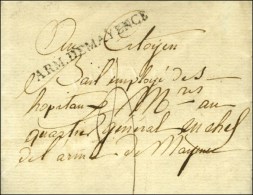 Au Citoyen
ARM. DE MAYENCE
Bail employé des
hopitaux M.res au
quartier général en chef
de l'armée de Mayence